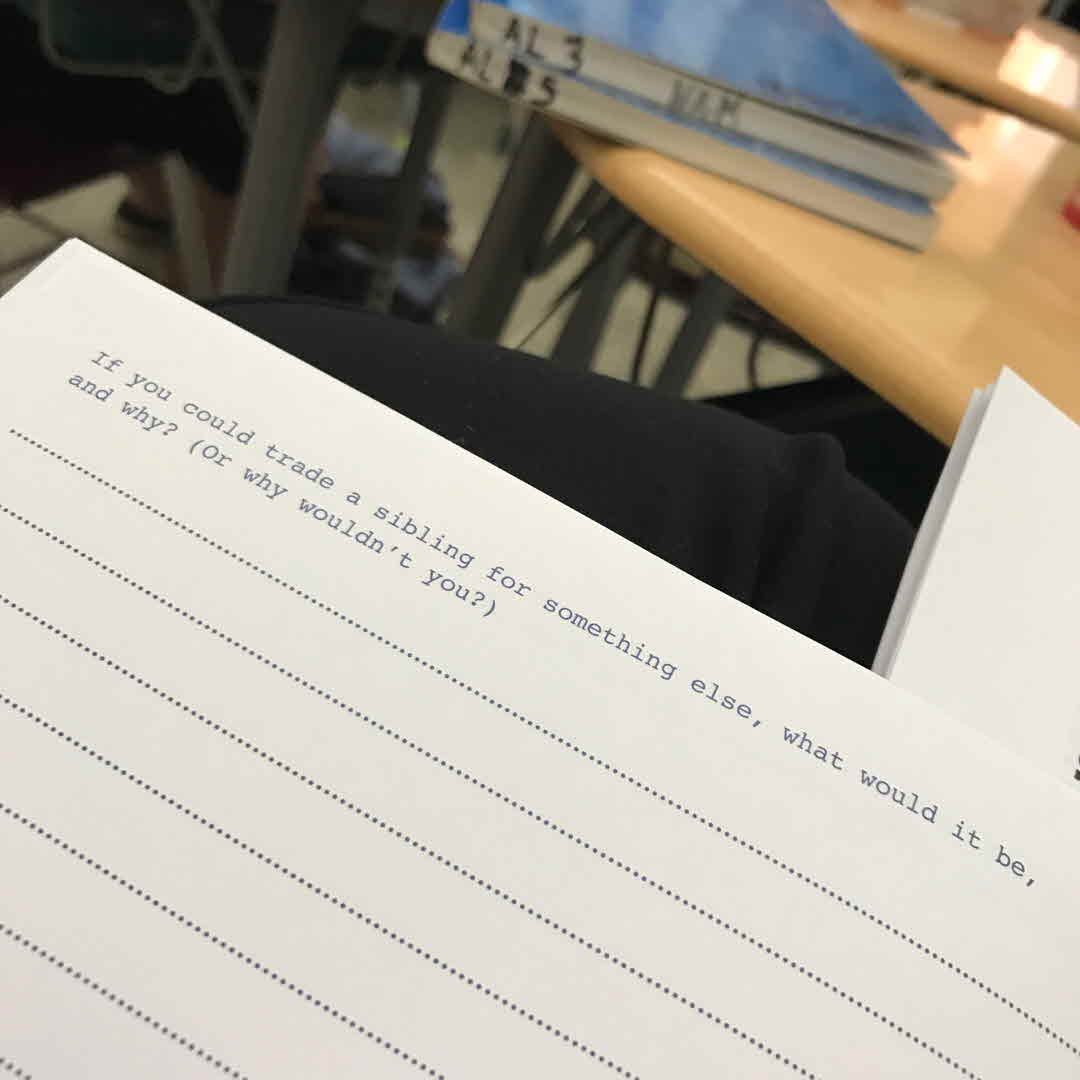 AL 3
AL 5
If you could trade a sibling for something else, what would it be,
and why? (Or why wouldn't you?)